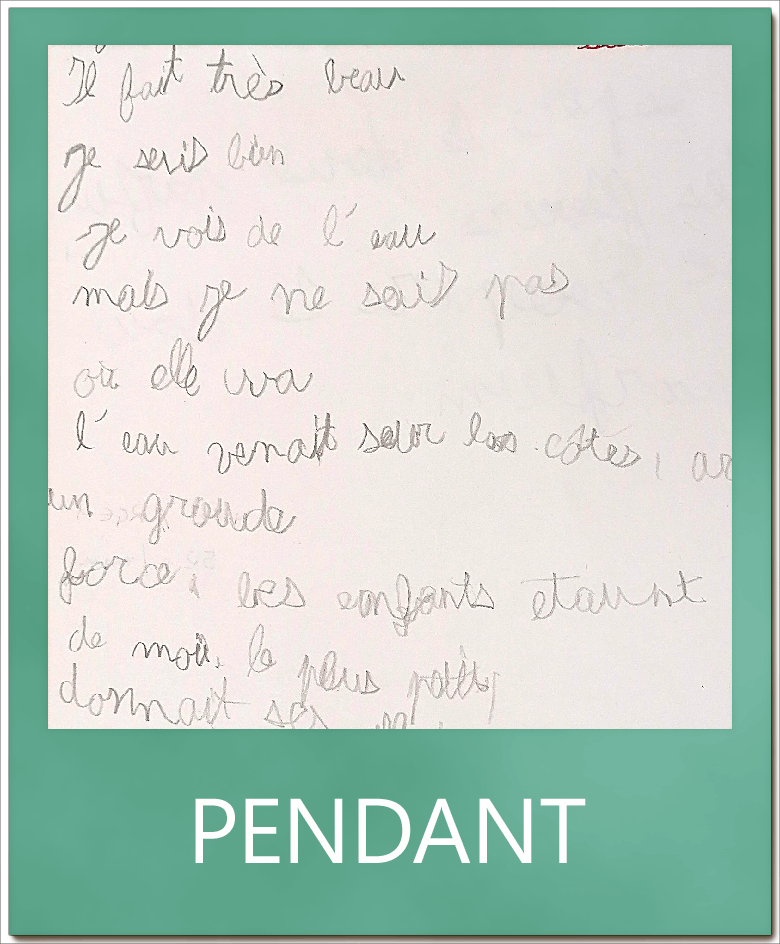 Il fait très beau
je suis bien
je vois de l'eau
mais je ne sais pas
où elle va
l'eau venait sur les côtes, av
un grande
force, les enfants etaint
de moi. le plus petit
donnait ses
PENDANT